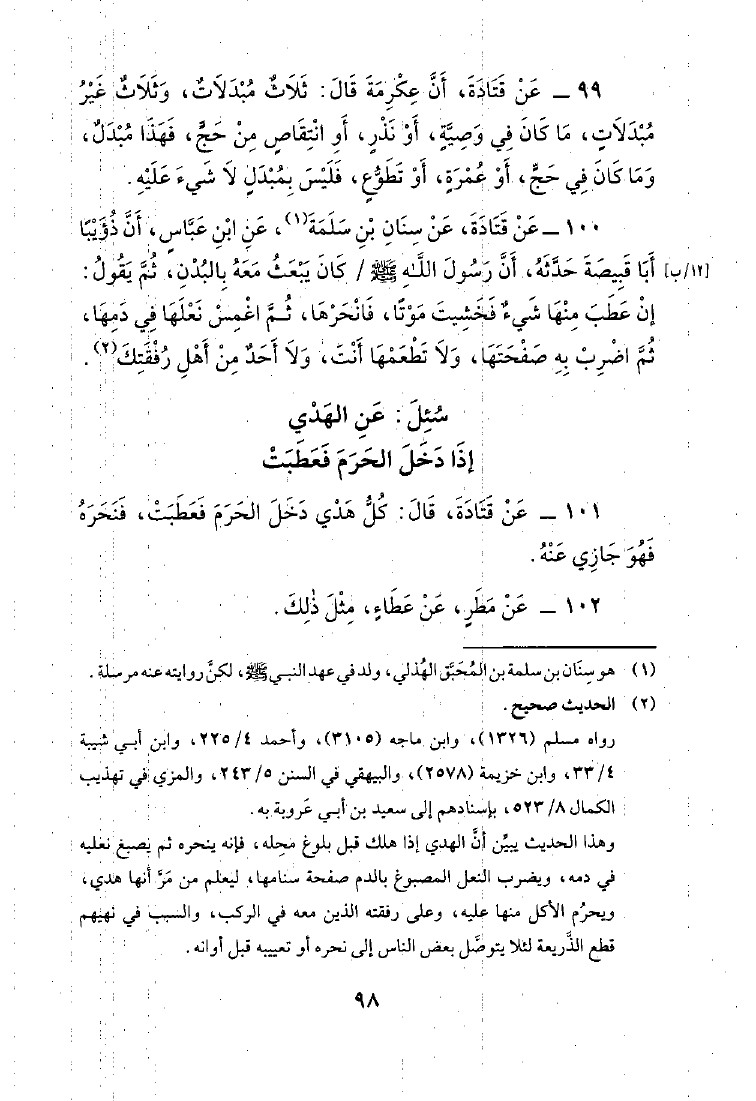 ٩٩ ـ عَنْ قَتَادَةَ، أَنَّ عِكْرِمَةَ قَالَ: ثَلَاثٌ مُبْدَلَاتٌ، وَثَلَاثٌ غَيْرُ
مُبْدَلَاتٍ، مَا كَانَ فِي وَصِيَّةٍ، أَوْ نَذْرٍ، أَوِ انْتِقَاصٍ مِنْ حَجٍّ، فَهَذَا مُبْدَلٌ،
وَمَا كَانَ فِي حَجٍّ، أَوْ عُمْرَةٍ، أَوْ تَطَوُّعٍ، فَلَيْسَ بِمُبْدَلٍ لَا شَيءَ عَلَيْهِ.
١٠٠ ـ عَنْ قَتَادَةَ، عَنْ سِنَانِ بْنِ سَلَمَةَ(١)، عَنِ ابْنِ عَبَّاسٍ، أَنَّ ذُؤَيْبًا
أَبَا قَبِيصَةَ حَدَّثَهُ، أَنَّ رَسُولَ اللَّهِ ﷺ / كَانَ يَبْعَثُ مَعَهُ بِالبُدْنِ، ثُمَّ يَقُولُ: [١٢/ب]
إِنْ عَطَبَ مِنْهَا شَيءٌ فَخَشِيتَ مَوْتًا، فَانْحَرْهَا، ثُـمَّ اغْمِسْ نَعْلَهَا فِي دَمِهَا،
ثُمَّ اضْرِبْ بِهِ صَفْحَتَهَا، وَلَا تَطْعَمْهَا أَنْتَ، وَلَا أَحَدٌ مِنْ أَهْلِ رُفْقَتِكَ(٢).
سُئِلَ: عَنِ الهَدْيِ
إِذَا دَخَلَ الحَرَمَ فَعَطَبَتْ
١٠١ ـ عَنْ قَتَادَةَ، قَالَ: كُلُّ هَدْيٍ دَخَلَ الحَرَمَ فَعَطَبَتْ، فَنَحَرَهُ
فَهُوَ جَازِي عَنْهُ.
١٠٢ ـ عَنْ مَطَرٍ، عَنْ عَطَاءٍ، مِثْلَ ذٰلِكَ.
(١) هو سِنَان بن سلمة بن المُحَبَّق الهُذلي، ولد في عهد النبي ﷺ، لكنَّ روايته عنه مرسلة.
(٢) الحديث صحيح.
رواه مسلم (١٣٢٦)، وابن ماجه (٣١٠٥)، وأحمد ٤/ ٢٢٥، وابن أبي شيبة
٤/ ٣٣، وابن خزيمة (٢٥٧٨)، والبيهقي في السنن ٥/ ٢٤٣، والمزي في تهذيب
الكمال ٨/ ٥٢٣، بإسنادهم إلى سعيد بن أبي عَروبة به.
وهذا الحديث يبيِّن أنَّ الهدي إذا هلك قبل بلوغ محِله، فإنه ينحره ثم يَصبغ نعليه
في دمه، ويضرب النعل المصبوغ بالدم صفحة سنامها، ليعلم من مَرَّ أنها هدي،
ويحرُم الأكل منها عليه، وعلى رفقته الذين معه في الركب، والسبب في نهيهم
قطع الذَّريعة لئلا يتوصَّل بعض الناس إلى نحره أو تعييبه قبل أوانه.
٩٨